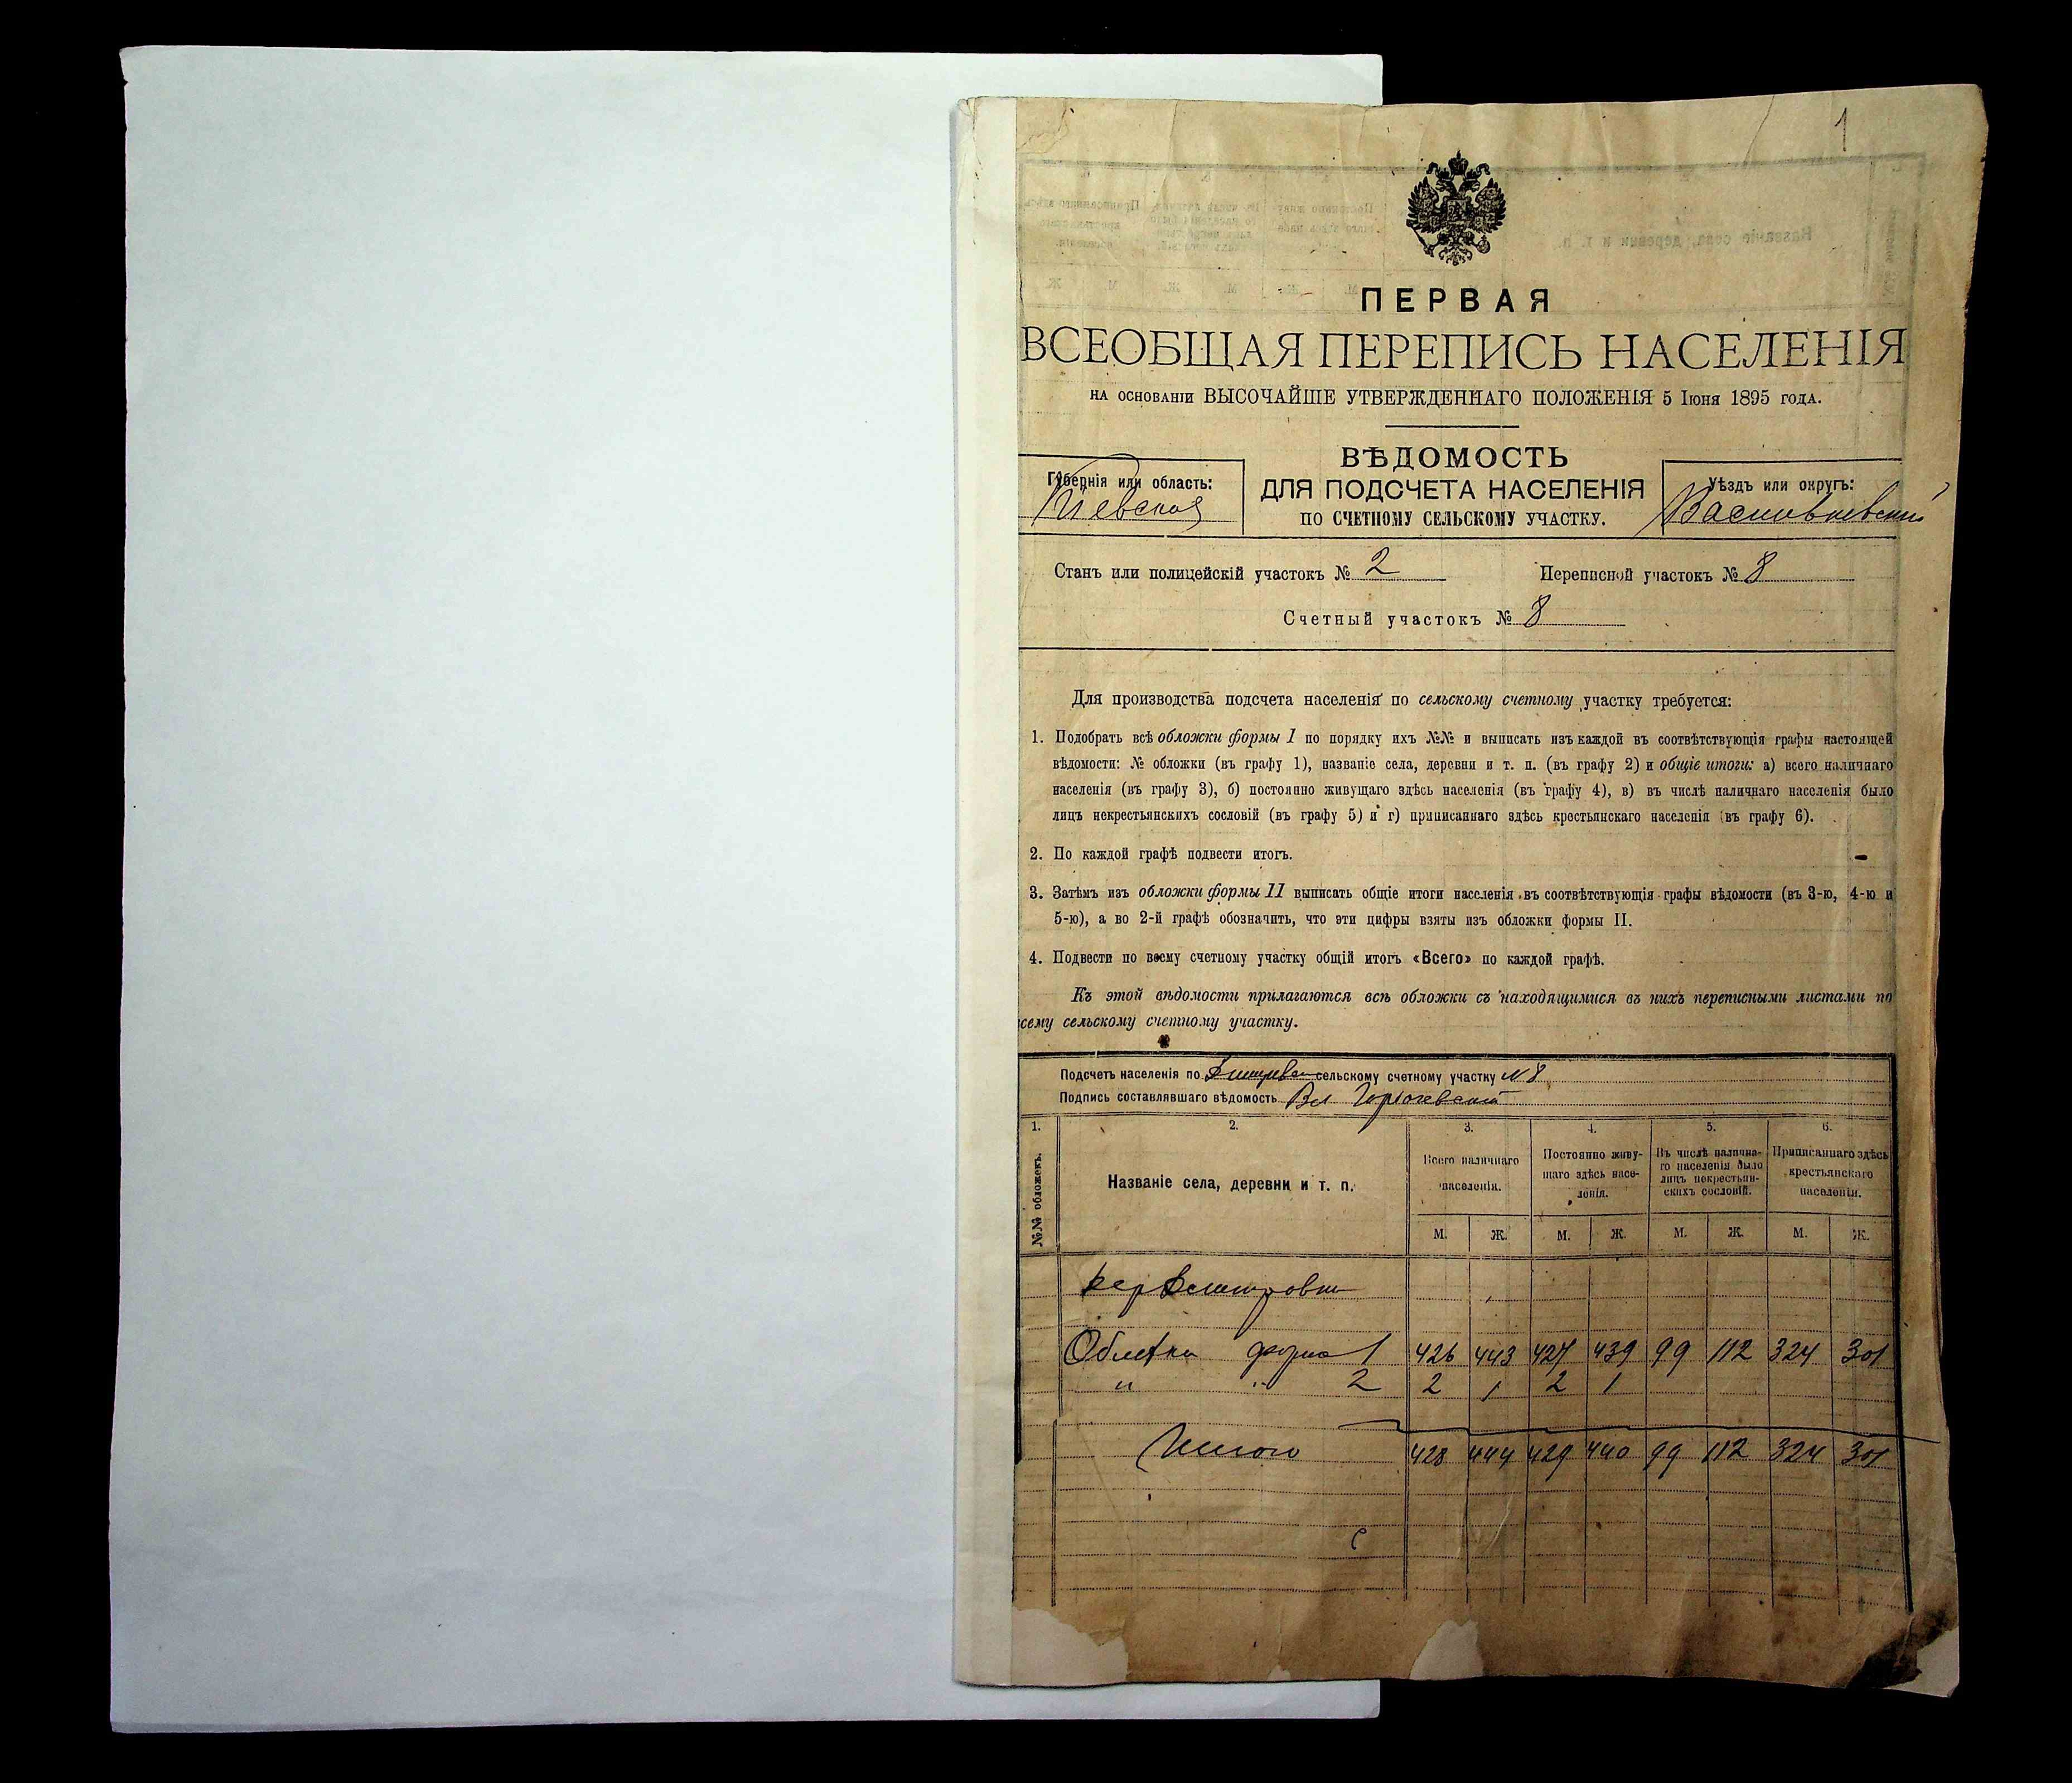 1
ПЕРВАЯ
ВСЕОБЩАЯ ПЕРЕПИСЬ НАСЕЛЕНІЯ
НА ОСНОВАНІИ ВЫСОЧАЙШЕ УТВЕРЖДЕННАГО ПОЛОЖЕНІЯ 5 Іюня 1895 ГОДА.
ВѢДОМОСТЬ
ДЛЯ ПОДСЧЕТА НАСЕЛЕНІЯ
ПО СЧЕТНОМУ СЕЛЬСКОМУ УЧАСТКУ.
Губернія или область:
Кіевская
Уѣздъ или округъ:
Васильковскій
Станъ или полицейскій участокъ № 2 Переписной участокъ № 8
Счетный участокъ № 8
Для производства подсчета населенія по сельскому счетному участку требуется:
1. Подобрать всѣ обложки формы I по порядку ихъ №№ и выписать изъ каждой въ соотвѣтствующія графы настоящей
вѣдомости: № обложки (въ графу 1), названіе села, деревни и т. п. (въ графу 2) и общіе итоги: а) всего наличнаго
населенія (въ графу 3), б) постоянно живущаго здѣсь населенія (въ графу 4), в) въ числѣ наличнаго населенія было
лицъ некрестьянскихъ сословій (въ графу 5) и г) приписаннаго здѣсь крестьянскаго населенія (въ графу 6).
2. По каждой графѣ подвести итогъ.
3. Затѣмъ изъ обложки формы II выписать общіе итоги населенія въ соотвѣтствующія графы вѣдомости (въ 3-ю, 4-ю и
5-ю), а во 2-й графѣ обозначить, что эти цифры взяты изъ обложки формы II.
4. Подвести по всему счетному участку общій итогъ «Всего» по каждой графѣ.
Къ этой вѣдомости прилагаются всѣ обложки съ находящимися въ нихъ переписными листами по
сему сельскому счетному участку.
Подсчетъ населенія по сельскому счетному участку N 8
Подпись составлявшаго вѣдомость Вл
1. 2. 3. 4. 5. 6.
№№ обложекъ.
Названіе села, деревни и т. п.
Всего наличнаго
населенія.
Постоянно живу-
щаго здѣсь насе-
ленія.
Въ числѣ налична-
го населенія было
лицъ некрестьян-
скихъ сословій.
Приписаннаго здѣсь
крестьянскаго
населенія.
М. Ж. М. Ж. М. Ж. М. Ж.
Обложки форма 1 426 443 427 439 99 112 324 301
" " 2 2 1 2 1
Итого 428 444 429 440 99 112 324 301